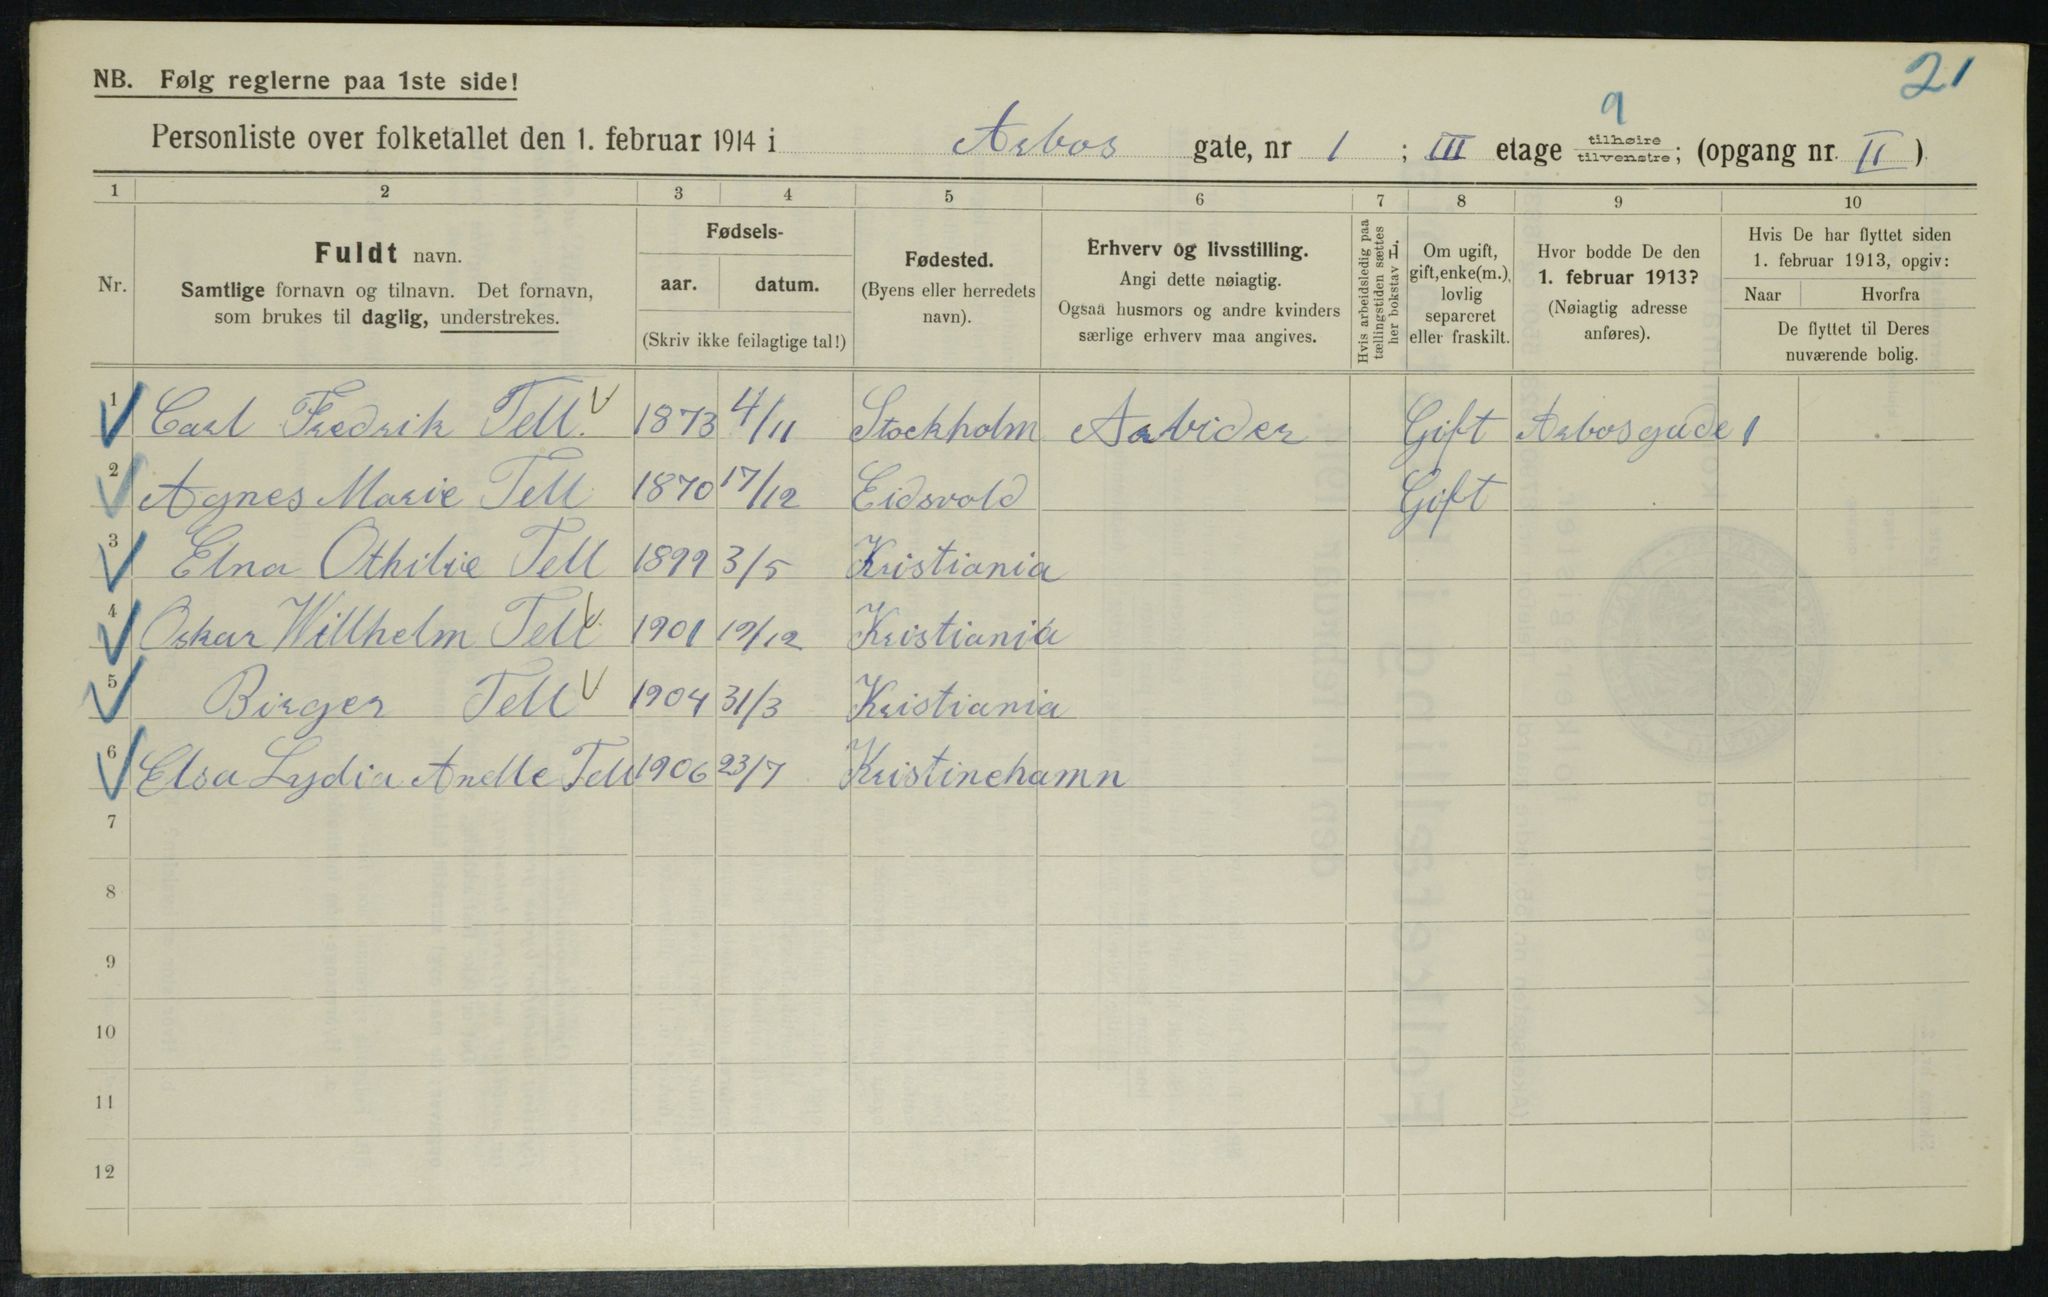 21
NB. Følg reglerne paa 1ste side!
9
Personliste over folketallet den 1. februar 1914 i Arbos gate, nr 1 ; III etage tilhøire tilvenstre; (opgang nr. II)
1 2 3 4 5 6 7 8 9 10
Nr.
Fuldt navn.
Samtlige fornavn og tilnavn. Det fornavn,
som brukes til daglig, understrekes.
Fødsels-
aar. datum.
(Skriv ikke feilagtige tal!)
Fødested.
(Byens eller herredets
navn).
Erhverv og livsstilling.
Angi dette nøiagtig.
Ogsaa husmors og andre kvinders
særlige erhverv maa angives.
Hvis arbeidsledig paa
tællingstiden sættes
her bokstav L.
Om ugift,
gift, enke(m.),
lovlig
separeret
eller fraskilt.
Hvor bodde De den
1. februar 1913?
(Nøiagtig adresse
anføres).
Hvis De har flyttet siden
1. februar 1913, opgiv:
Naar Hvorfra
De flyttet til Deres
nuværende bolig.
1 Carl Fredrik Tell. 1873 4/11 Stockholm Arbider Gift Arbosgade 1
2 Agnes Marie Tell 1870 17/12 Eidsvold Gift
3 Elna Othilie Tell 1899 3/5 Kristiania
4 Oskar Willhelm Tell 1901 19/12 Kristiania
5 Birger Tell 1904 31/3 Kristiania
6 Elsa Lydia Anelle Tell 1906 23/7 Kristinehamn
7
8
9
10
11
12